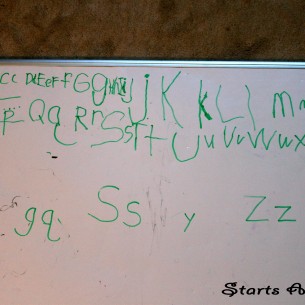 cc DdEeFfGgHhIiJj Kk Ll Mm
p Qq Rr Ss Tt Uu Vv Ww x
gq Ss y Zz
Starts